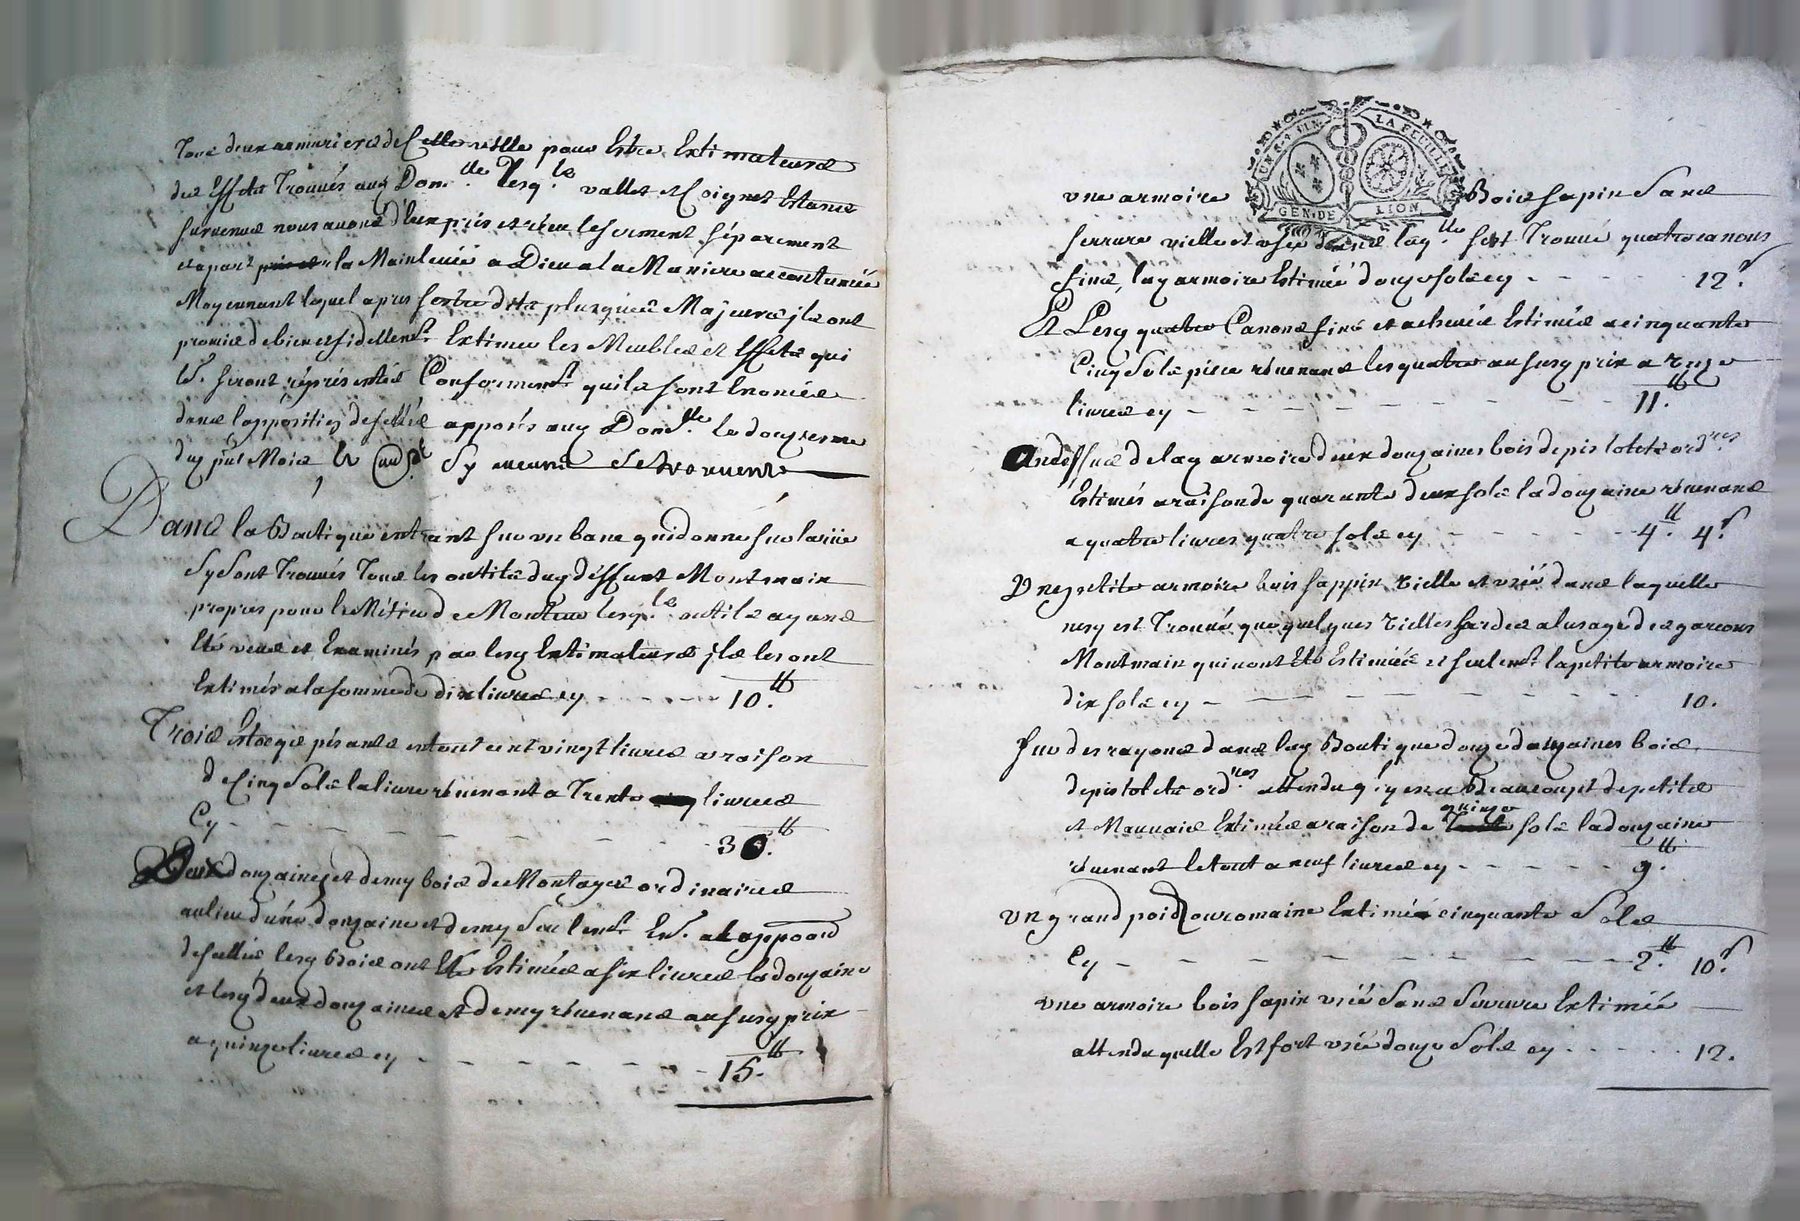 Tous deux armuriers de Cette ville pour Estre Extimateurs
des Effets Trouvés aud Dom.lle Lesq.ls vallet et Coignet Estans
survenus nous avons d'Eux pris et réçu le serment séparement
et apart la Main levéé a Dieu a la Maniere accoutuméé
Moyennant lequel apres s'estre dits plus que Majeurs jls ont
promis de bien et fidellem.t Extimer les Meubles et Effets qui
leur seront réprésentés Conformem.t quils sont Enoncés
dans l'apposition de scellés apposés aud Domi.lle le douzieme
du p.nt Mois le
Dans la Boutique entrant sur un banc qui donne sur la rüe
sy sont Trouvés Tous les outils dud déffunt Montmain
propres pour le Métier de Monteur lesq.ls outils ayans
Eté veus et Examinés par lesd Extimateurs jls les ont
Extimés a la somme de dix livres cy - - - 10.tt
Trois Estocqs pésants entout cent vingt livres a raison
de Cinq Sols la livre révenant a Trente livres
Cy - - - - - - 30.tt
Deux douzaines et demy bois de Montages ordinaires
au lieu d'une douzaine et demy Seulem.t
de scellés lesd Bois ont Eté Extimés a six livres la douzaine
et lesd deux douzaines et demy révenans au susd prix
a quinze livres cy - - - - - - 15.tt
UN S. 4 DEN. LA FEUILLE
GEN. DE LION
une armoire Bois sapin Sans
serrure vielle et usée dans laq.lle sest Trouvé quatre canons
finis, lad armoire Extiméé douze sols cy - - - - 12.s
Et Lesd quatre Canons finis et achevés Extimés a cinquante
Cinq Sols piece révenans les quatre au susd prix a onze
livres cy - - - - - - - - 11.tt
Audessus de lad armoire deux douzaines bois de pistolets ord.res
Extimés a raison de quarante deux sols la douzaine révenans
a quatre livres quatre sols cy - - - - - 4.tt 4.s
Une petite armoire bois sappin vielle et uséé dans laquelle
nesy est Trouvé que quelques vielles hardes a lusage des garcons
Montmain qui nont Eté Extimées et seulem.t la petite armoire
dix sols cy - - - - - - 10.
sur des rayons dans lad Boutique douze douzaines bois
de pistolets ord.res attendu q.l y en a Beaucoup de petits
et Mauvais Extimés a raison de quinze sols la douzaine
révenant le tout a neuf livres cy - - - - - 9.tt
Un grand poid ou romaine Extimé cinquante Sols
Cy - - - - - - - - 2.tt 10.s
une armoire bois sapin uséé Sans Serrure Extiméé
attendu quelle Est fort uséé douze Sols cy - - - - - 12.